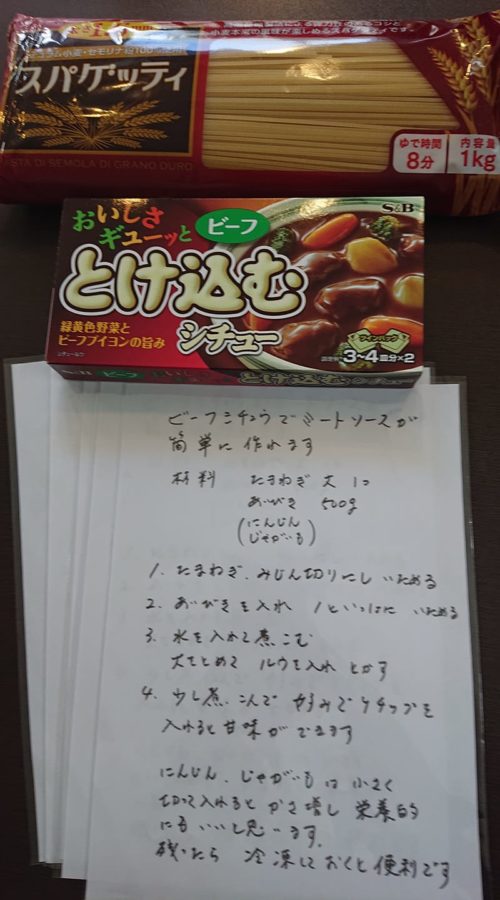 デュラム小麦・セモリナ粉100%使用
スパゲッティ
PASTA DI SEMOLA DI GRANO DURO
小麦本来の風味が楽しめるスパゲッティです。
ゆで時間
8分
内容量
1kg
S&B
おいしさ
ギューッと
ビーフ
とけ込む
シチュー
緑黄色野菜と
ビーフブイヨンの旨み
シチュールウ
ツインパック
3〜4皿分×2
S&B ビーフ とけ込む シチュー
ビーフシチュウでミートソースが
簡単に作れます
材料 たまねぎ 大 1コ
あいびき 500g
(にんじん
じゃがいも)
1. たまねぎ、みじん切りにし いためる
2. あいびきを入れ 1といっしょに いためる
3. 水を入れて煮こむ
火をとめて ルウを入れ とかす
4. 少し煮こんで 好みでケチャップを
入れると甘味がでます
にんじん、じゃがいもは小さく
切って入れると かさ増し 栄養的
にもいいと思います。
残ったら 冷凍しておくと便利です